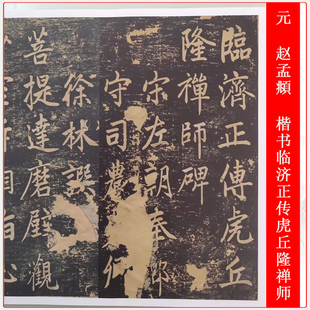 元 赵孟頫 楷书临济正传虎丘隆禅师
臨濟正傳虎丘
隆禪師碑
宋左朝奉郎
守司農
徐林譔
菩提達磨壁觀